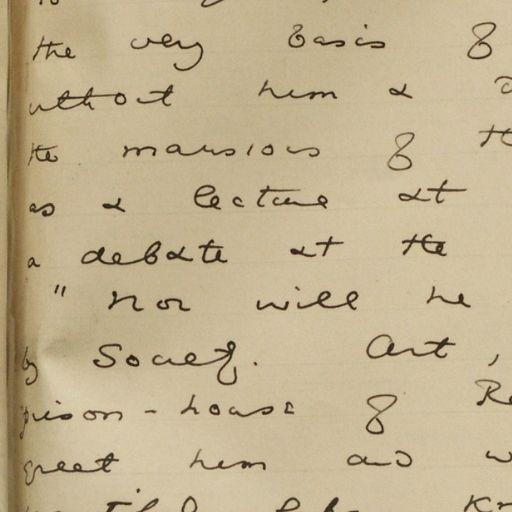 the very basis of
without him &
the mansions of
as a lecture at
a debate at the
" Nor will he
by Society. Art,
prison-house of
greet him and